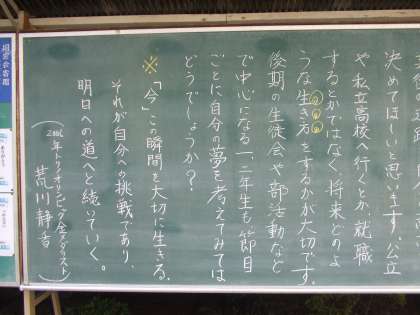 決めてほしいと思います。公立
や私立高校へ行くとか、就職
するとかではなく、将来どのよ
うな生き方をするかが大切です。
後期の生徒会や部活動など
で中心になる一、二年生も節目
ごとに自分の夢を考えてみては
どうでしょうか?
※「今」この瞬間を大切に生きる。
それが自分への挑戦であり、
明日への道へと続いていく。
(2006年トリノオリンピック金メダリスト)
荒川静香